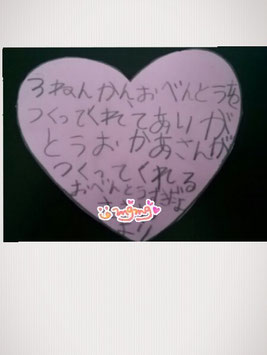 3ねんかん、おべんとうを
つくってくれてありが
とうおかあさんが
つくってくれる
おべんとう
より